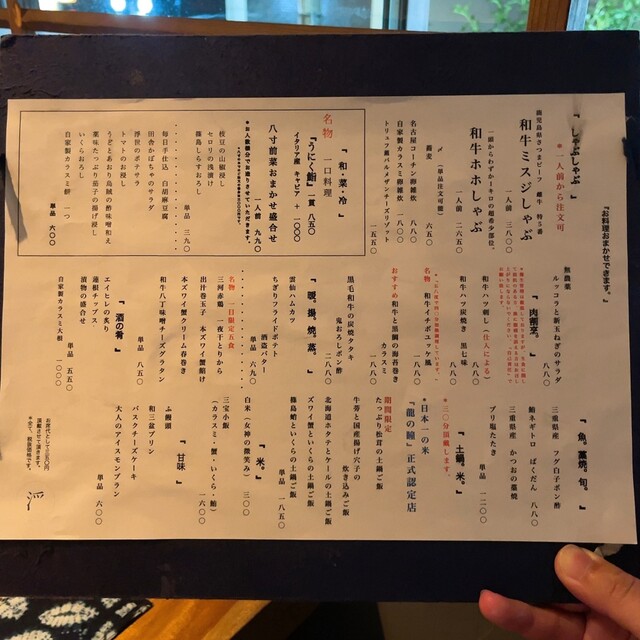 『お料理おまかせできます。』
『しゃぶしゃぶ』
*一人前から注文可
鹿児島県さつまビーフ 雌牛 特5番
和牛ミスジしゃぶ
一人前 三八五〇
一頭からわずか一キロの超希少部位。
和牛ホホしゃぶ
一人前 二六五〇
〆(単品注文可能)
蕎麦 六五〇
名古屋コーチン卵雑炊 一八〇〇
自家製カラスミ卵雑炊
トリュフ薫パルメザンチーズリゾット
一五五〇
『和・菜・冷』
名物 一口料理
『うにく鮨』 一貫 八五〇
イタリア産 キャビア + 一〇〇〇
八寸前菜おまかせ盛合せ
一人前 九九〇
*お人数様分でお造りさせていただきます。
枝豆の山椒浸
セロリの浅漬け
篠島しらすおろし
単品 三九〇
毎日手仕込 白胡麻豆腐
田舎かぼちゃのサラダ
浮世のポテサラ
トマトのお浸し
うどとあおり烏賊の酢味噌和え
薬味たっぷり茄子の揚げ浸し
いくらおろし
自家製カラスミ餅 一つ
単品 六〇〇
無農薬
ルッコラと新玉ねぎのサラダ
八八〇
『肉割烹。』
和牛ハツ刺し(仕入による)
和牛ハツ炭焼き 黒七味
八八〇
名物 和牛イチボユッケ風
おすすめ 和牛と黒鯛の海苔巻き
カラスミ
黒毛和牛の炭焼タタキ
鬼おろしポン酢
二八八〇
『暖。揚。焼。蒸。』
雲仙ハムカツ
ちぎりフライドポテト
酒盗バター
単品 六九〇
名物 一日限定五食
三河赤鶏 一夜干とりから
出汁巻玉子 本ズワイ蟹餡け
本ズワイ蟹クリーム春巻き
和牛八丁味噌チーズグラタン
単品 八五〇
『酒の肴』
エイヒレの炙り
蓮根チップス
漬物の盛合せ
単品 五五〇
自家製カラスミ大根
一〇〇〇
『魚。藁焼。旬。』
三重県産 フグ白子ポン酢
鮪ネギトロ ばくだん 八八〇
三重県産 かつおの藁焼
ブリ塩たたき
単品 一二〇〇
『土鍋。米。』
*三〇分頂戴します。
*日本一の米
『龍の瞳』正式認定店
期間限定
たっぷり松茸の土鍋ご飯
牛蒡と国産揚げ穴子の
炊き込みご飯
北海道ホタテとケールの土鍋ご飯
ズワイ蟹といくらの土鍋ご飯
篠島蛸といくらの土鍋ご飯
単品 一八五〇
『米。』
白米(女神の微笑み) 三〇〇
三宝小飯
(カラスミ・蟹・いくら・鮪)
一六〇〇
『甘味』
ふ饅頭
和三盆プリン
バスクチーズケーキ
大人のアイスモンブラン
単品 六〇〇
お席代として三五〇円
頂戴させて頂きます。
*全て、税抜価格です。